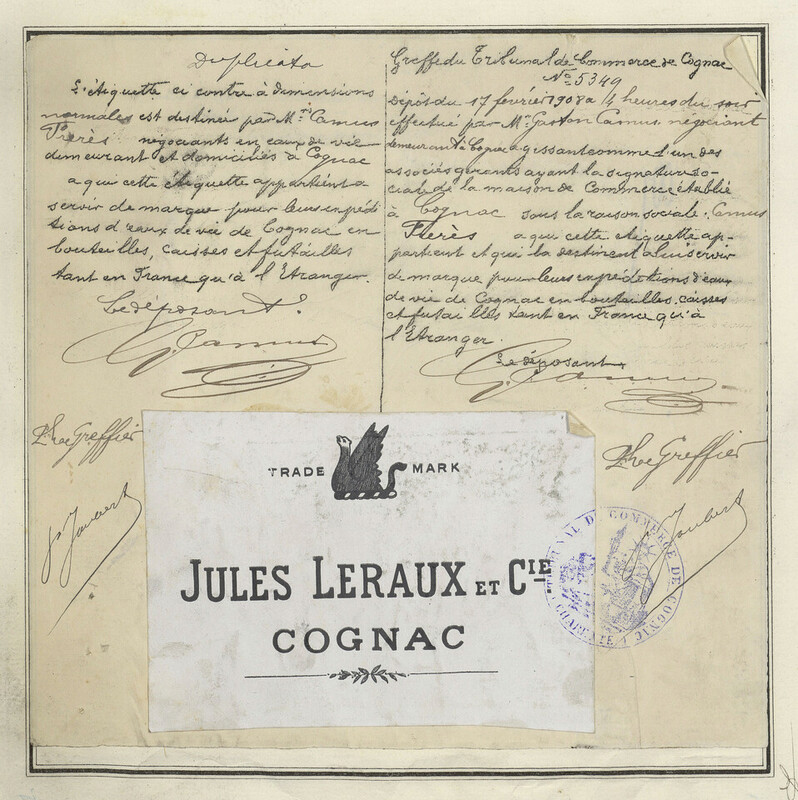 Duplicata
L'étiquette ci contre à dimensions
normales est destinée par Mrs Camus
Frères négociants en eaux de vie
demeurant et domiciliés à Cognac
a qui cette étiquette appartient a
servir de marque pour leurs expédi
tions d'eaux de vie de Cognac en
bouteilles, caisses et futailles
tant en France qu'à l'Etranger.
Le déposant.
G. Camus
Greffe du Tribunal de Commerce de Cognac
No 5349
Dépôt du 17 février 1908 a 4 heures du soir
effectué par Mr Gaston Camus, négociant
demeurant à Cognac agissant comme l'un des
associés gérants ayant la signature so-
ciale de la maison de Commerce établie
à Cognac sous la raison sociale: Camus
Frères a qui cette étiquette ap-
partient et qui la destinent à lui servir
de marque pour leurs expéditions d'eaux
de vie de Cognac en bouteilles, caisses
et futailles tant en France qu'à
l'Etranger.
Le déposant
G. Camus
Greffier
Joubert
Greffier
Joubert
TRADE MARK
JULES LERAUX ET CIE
COGNAC
TRIBUNAL DE COMMERCE DE COGNAC
CHARENTE